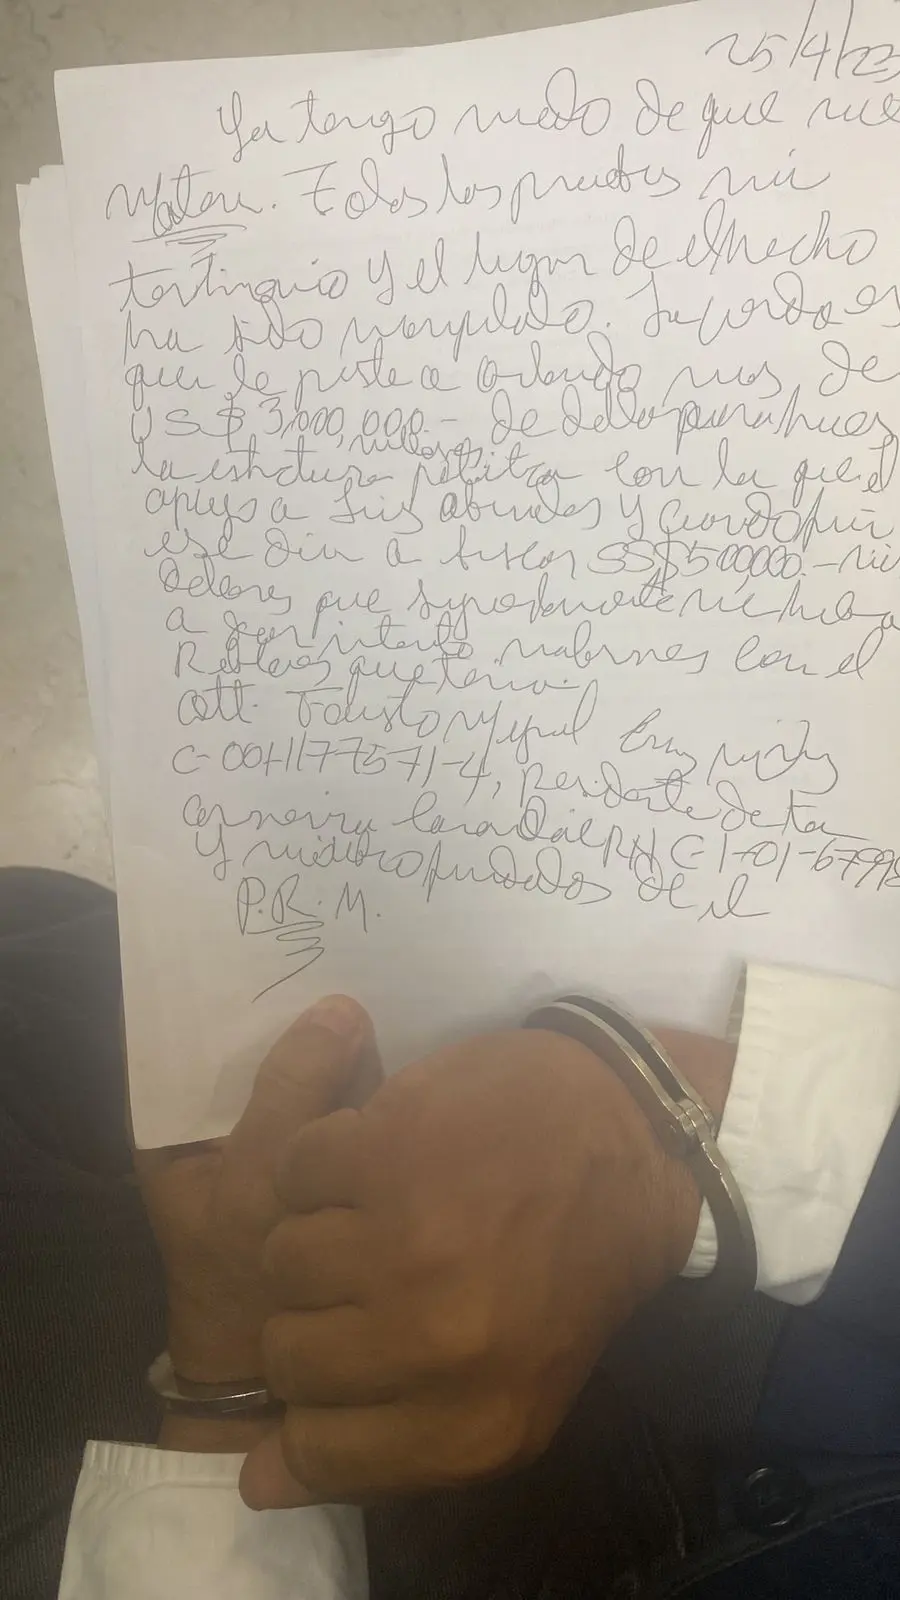 25/4/23
Ya tengo miedo de que me
Maten. Todas las pruebas mi
testimonio y el lugar de el hecho
ha sido manipulado. La verdad es
que le preste a Orlando mas de
US$ 3,000,000.- de dolares para hacer
millones
la estructura politica con la que el
apoyo a Luis Abinader y cuando fui
ese dia a buscar US$500,000.- mil
dolares que supuestamente me iba
a dar intento matarme con el
que tenia.
att. Fausto Miguel Cruz
C- 001-1177571-4, Presidente de
y miembro fundador de el
P.R.M.